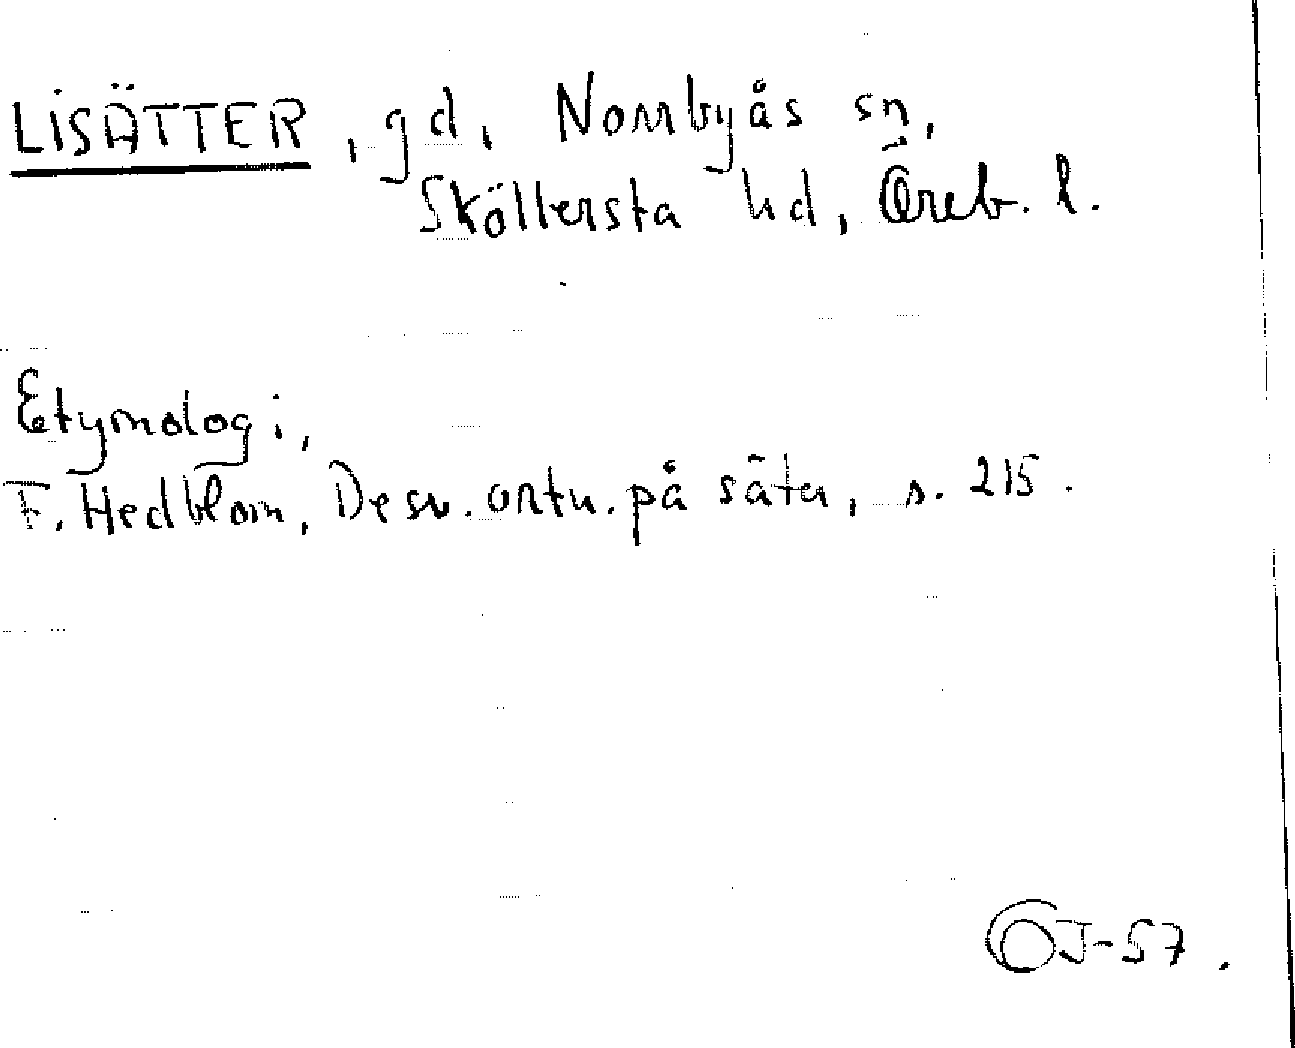 LISÄTTER, gd, Norrbyås sn,
Sköllersta hd, Öreb. l.
Etymologi,
F. Hedblom, De sv. ortn. på säter, s. 215.
J-57.